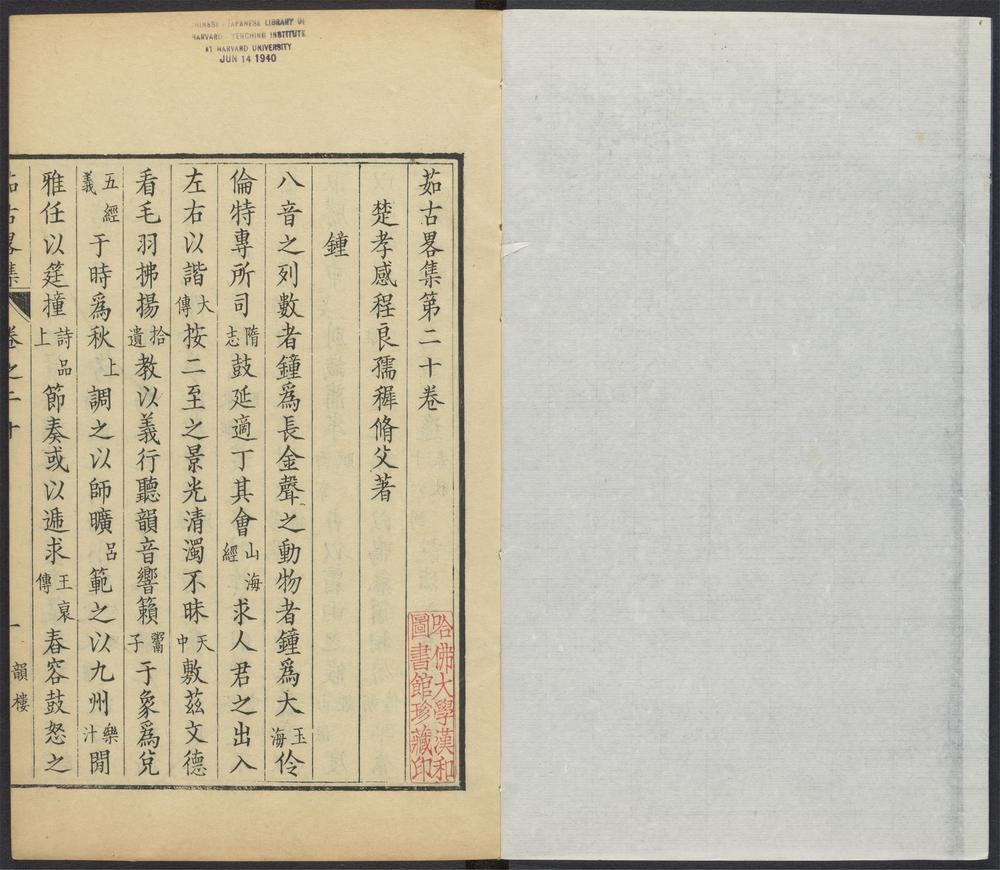 CHINESE - JAPANESE LIBRARY OF
HARVARD - YENCHING INSTITUTE
AT HARVARD UNIVERSITY
JUN 14 1940
茹古畧集第二十卷
楚孝感程良孺穉脩父著
鐘
八音之列數者鐘爲長金聲之動物者鐘爲大玉海伶
倫特專所司隋志鼓延適丁其會山海經求人君之出入
左右以諧大傳按二至之景光清濁不昧天中敷茲文德
看毛羽拂揚拾遺教以義行聽韻音響籟鬻子于象爲兌
五經義于時爲秋上調之以師曠呂範之以九州樂汁閒
雅任以筳撞詩品上節奏或以遞求王裒傳春容鼓怒之
茹古畧集
卷之二十
一
韻樓
哈佛大學漢和
圖書館珍藏印